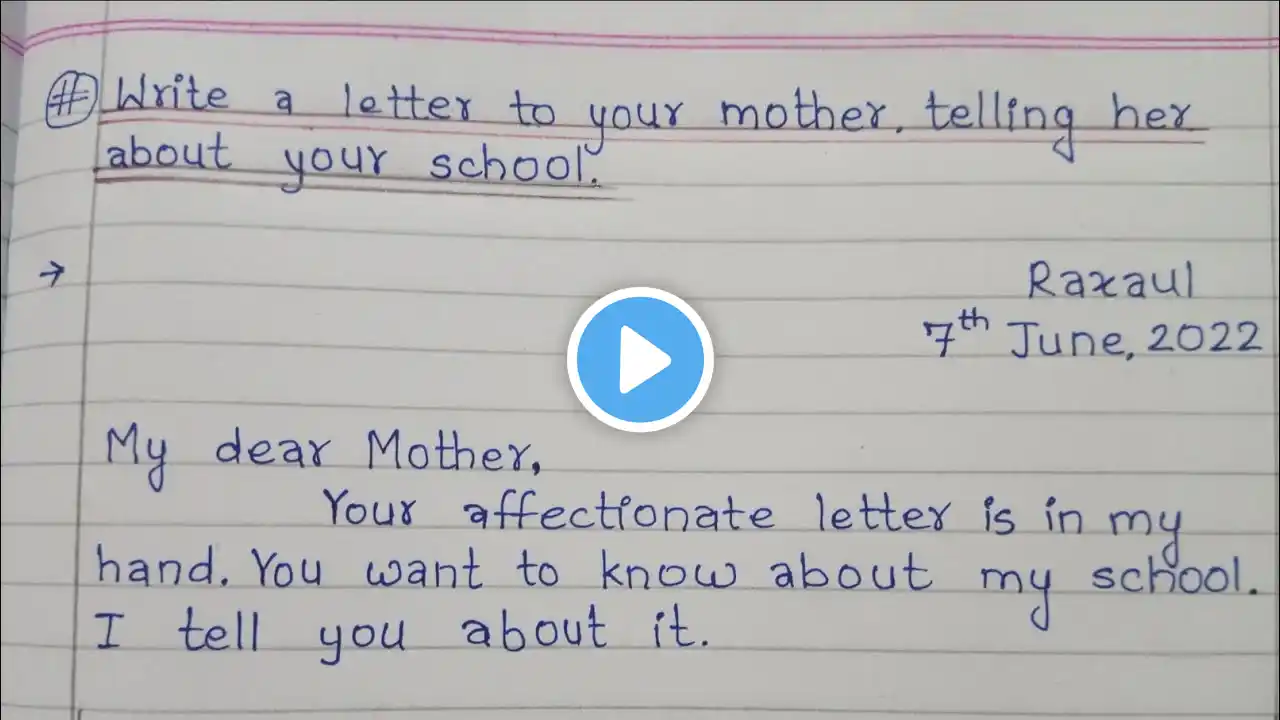 # Write a letter to your mother, telling her
about your school.
→ Raxaul
7th June, 2022
My dear Mother,
Your affectionate letter is in my
hand. You want to know about my school.
I tell you about it.